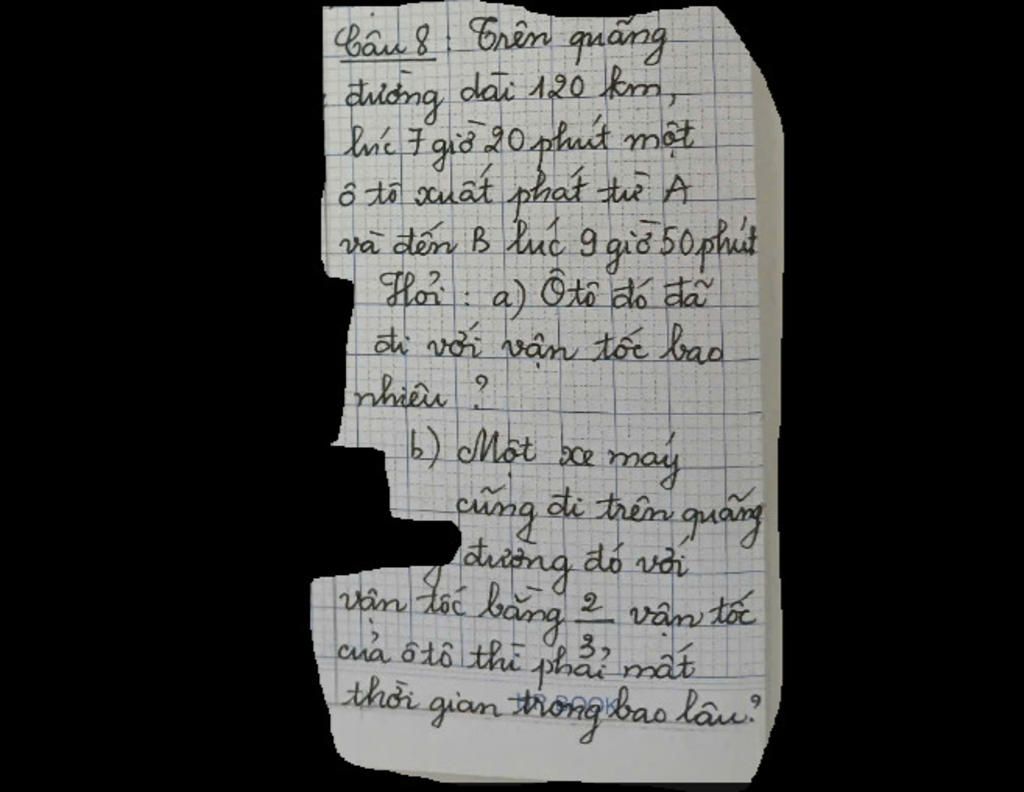 Câu 8 : Trên quãng
đường dài 120 km,
lúc 7 giờ 20 phút một
ô tô xuất phát từ A
và đến B lúc 9 giờ 50 phút
Hỏi : a) Ôtô đó đã
đi với vận tốc bao
nhiêu ?
b) Một xe máy
cũng đi trên quãng
đường đó với
vận tốc bằng 2/3 vận tốc
của ôtô thì phải mất
thời gian trong bao lâu?